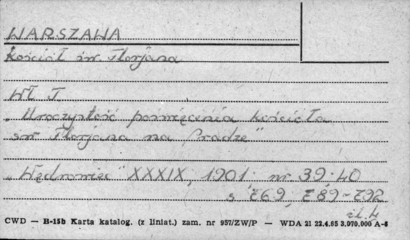 WARSZAWA
Kościół św. Florjana
Wł. J.
„Uroczystość poświęcenia kościoła
św Florjana na Pradze"
„Wędrowiec" XXXIX, 1901. nr 39, 40
s 769, 787-792
CWD — B-15b Karta katalog. (z liniat.) zam. nr 957/ZW/P — WDA 21 22.4.65 3.070.000 A-6